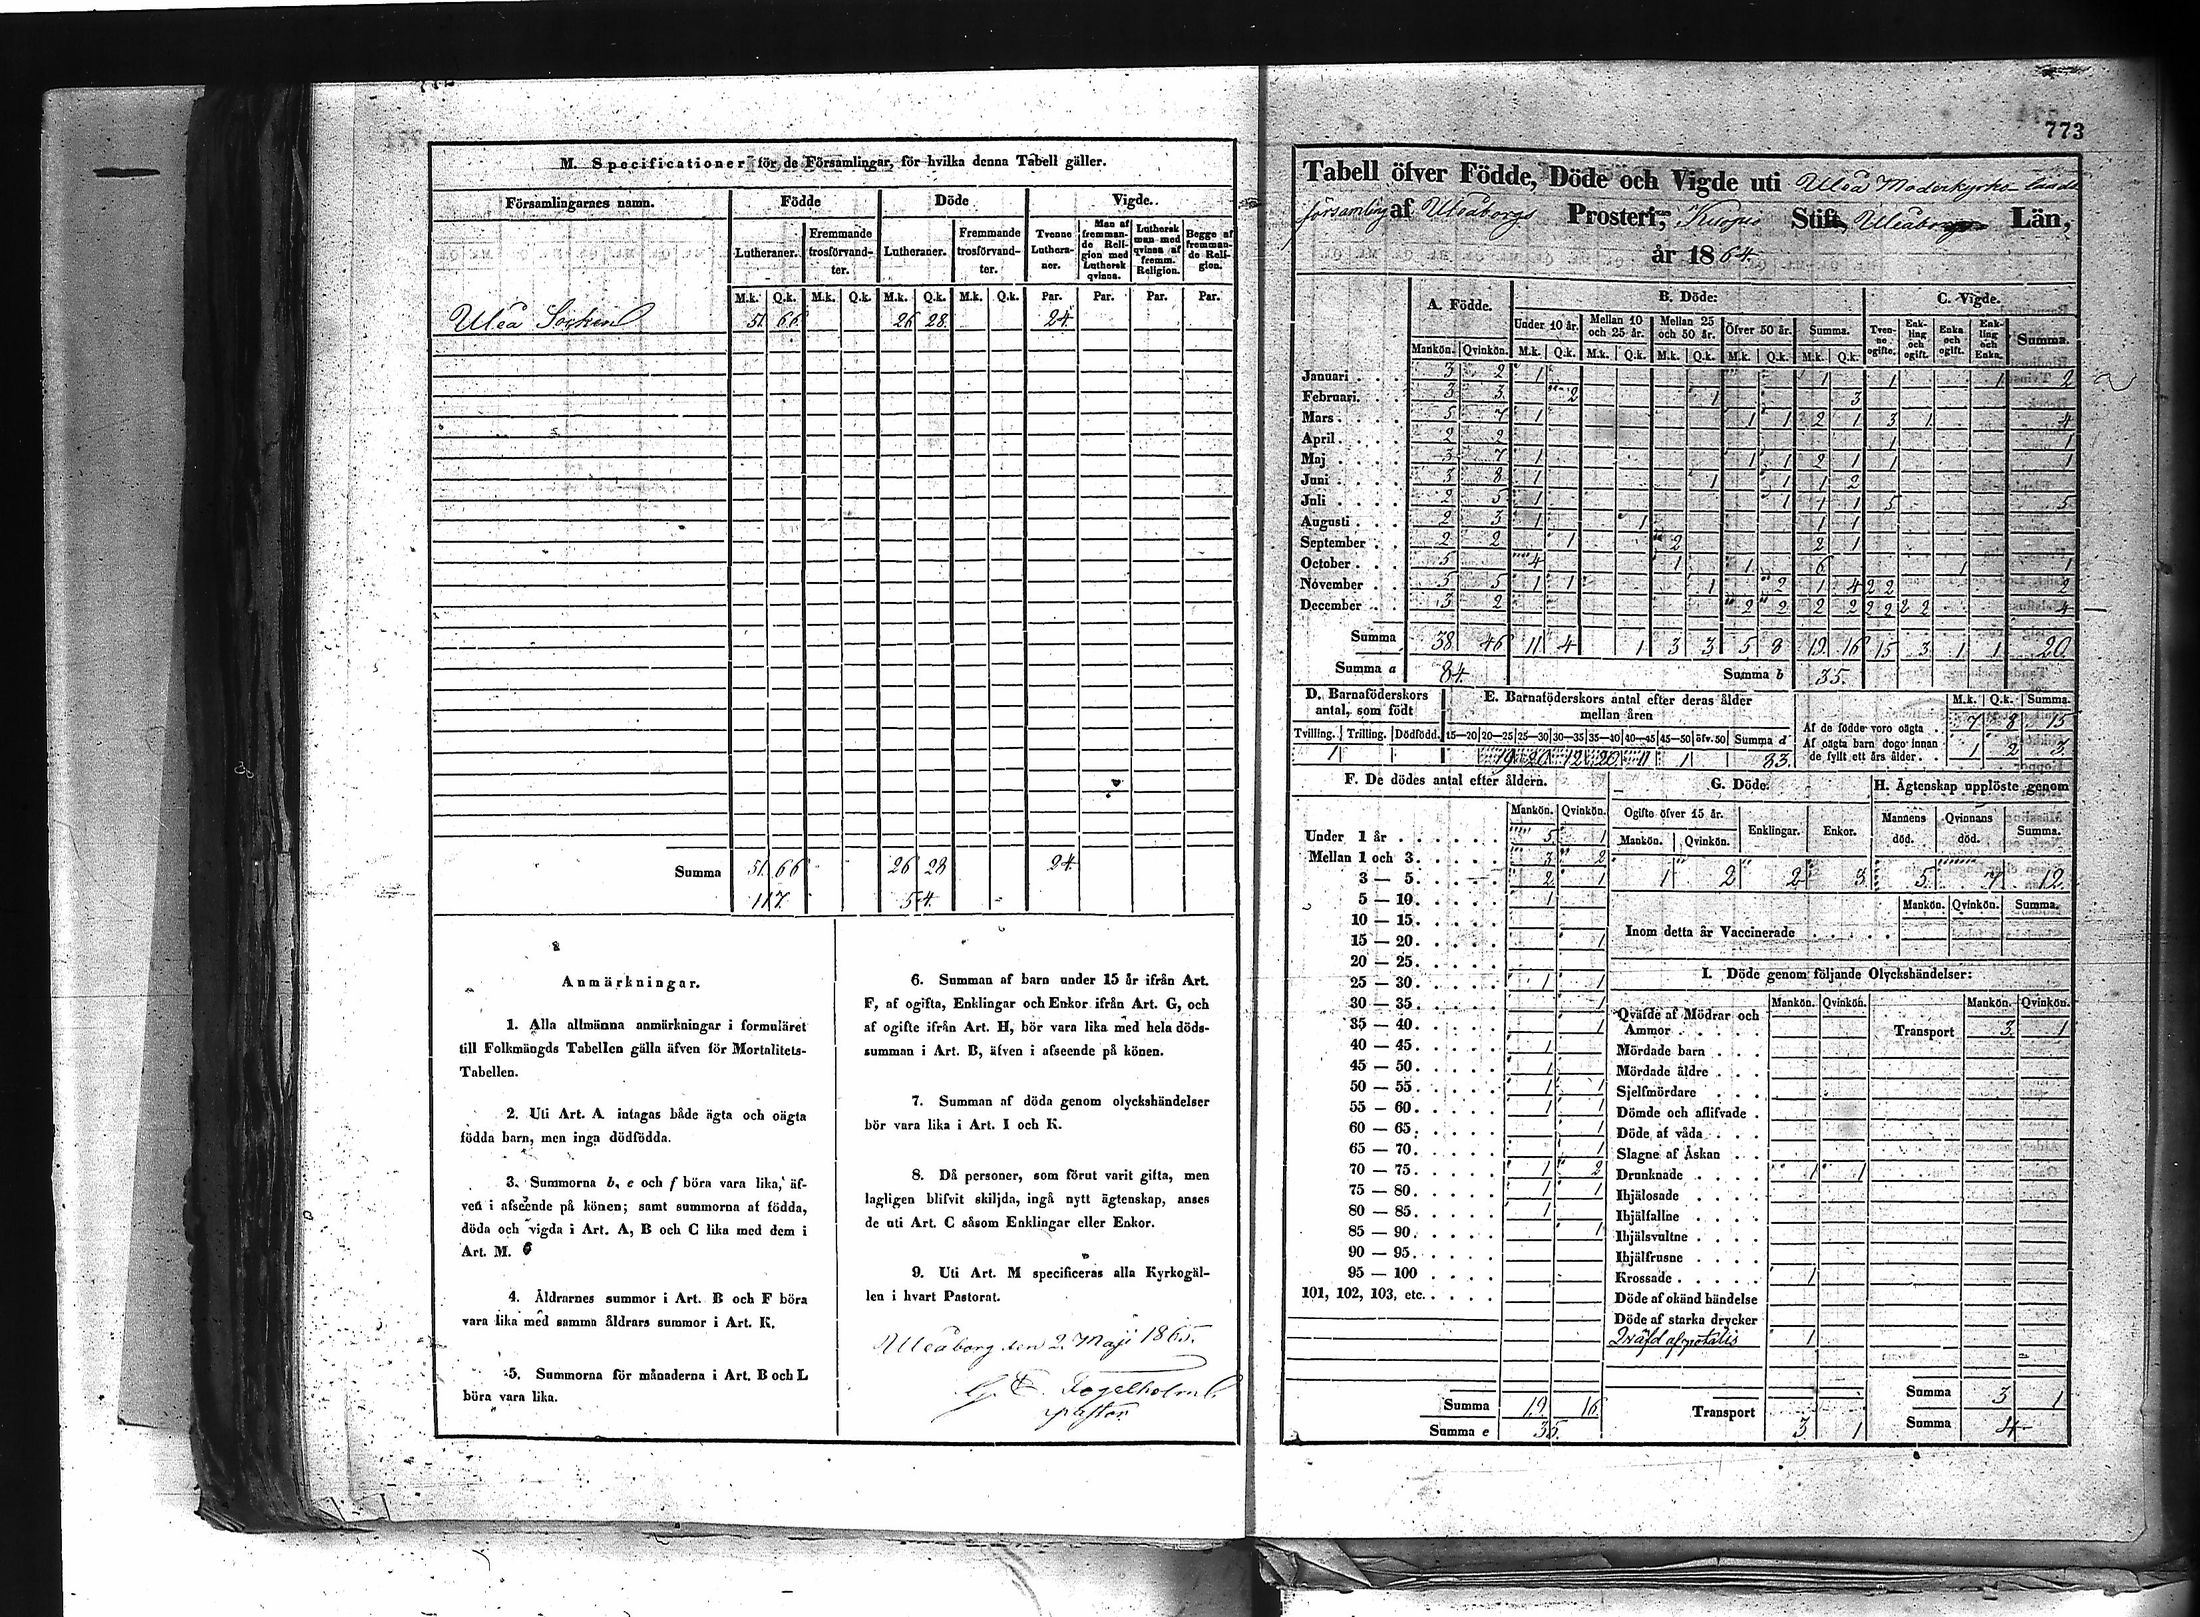 M. Specificationer för de Församlingar, för hvilka denna Tabell gäller.
Församlingarnes namn. Födde Döde Vigde.
Lutheraner. Fremmande trosförvandter. Lutheraner. Fremmande trosförvandter. Tvenne Lutheraner. Man af fremmande Religion med Luthersk qvinna. Luthersk man med qvinna af fremm. Religion. Begge af fremmande Religion.
M.k. Q.k. M.k. Q.k. M.k. Q.k. M.k. Q.k. Par. Par. Par. Par.
Uleå Socken 51 66 26 28 24
Summa 51 66 26 28 24
117 54
Anmärkningar.
1. Alla allmänna anmärkningar i formuläret
till Folkmängds Tabellen gälla äfven för Mortalitets-
Tabellen.
2. Uti Art. A intagas både ägta och oägta
födda barn, men inga dödfödda.
3. Summorna b, e och f böra vara lika, äf-
ven i afseende på könen; samt summorna af födda,
döda och vigda i Art. A, B och C lika med dem i
Art. M.
4. Åldrarnes summor i Art. B och F böra
vara lika med samma åldrars summor i Art. K.
5. Summorna för månaderna i Art. B och L
böra vara lika.
6. Summan af barn under 15 år ifrån Art.
F, af ogifta, Enklingar och Enkor ifrån Art. G, och
af ogifte ifrån Art. H, bör vara lika med hela döds-
summan i Art. B, äfven i afseende på könen.
7. Summan af döda genom olyckshändelser
bör vara lika i Art. I och K.
8. Då personer, som förut varit gifta, men
lagligen blifvit skiljda, ingå nytt ägtenskap, anses
de uti Art. C såsom Enklingar eller Enkor.
9. Uti Art. M specificeras alla Kyrkogäl-
len i hvart Pastorat.
Uleåborg den 2 Maji 1865.
Fogelholm
pastor
773
Tabell öfver Födde, Döde och Vigde uti Uleå Moderkyrko lands
församling af Uleåborgs Prosteri, Kuopio Stift, Uleåborgs Län,
år 1864
A. Födde. B. Döde: C. Vigde.
Under 10 år. Mellan 10 och 25 år. Mellan 25 och 50 år. Öfver 50 år. Summa. Tvenne ogifte. Enkling och ogift. Enka och ogift. Enkling och Enka. Summa.
Mankön. Qvinkön. M.k. Q.k. M.k. Q.k. M.k. Q.k. M.k. Q.k. M.k. Q.k.
Januari 3 2 1 1 1 1 2
Februari 3 3 2 1 3
Mars 5 7 1 1 1 2 1 3 1 4
April 2 2 1 1
Maj 3 7 1 1 1 2 1 1 1
Juni 3 8 1 1 1 1 2
Juli 2 5 1 1 1 1 5 5
Augusti 2 3 1 1 1 1
September 2 2 1 2 2 1
October 5 4 1 1 6 1 1
November 5 5 1 1 1 2 1 4 2 2 2
December 3 2 2 2 2 2 2 2 2 2 4
Summa 38 46 11 4 1 3 3 5 8 19 16 15 3 1 1 20
Summa a 84. Summa b 35.
D. Barnaföderskors antal, som födt
Tvilling. Trilling. Dödfödd.
1
E. Barnaföderskors antal efter deras ålder mellan åren
15—20 20—25 25—30 30—35 35—40 40—45 45—50 öfv. 50 Summa d
19 20 12 20 11 1 83.
M.k. Q.k. Summa.
Af de födde voro oägta 7 8 15
Af oägta barn dogo innan de fyllt ett års ålder 1 2 3
F. De dödes antal efter åldern.
Mankön. Qvinkön.
Under 1 år 5 1
Mellan 1 och 3 3 2
3 — 5 2 1
5 — 10 1
10 — 15
15 — 20 1
20 — 25
25 — 30 1 1
30 — 35 1
35 — 40 1
40 — 45 1
45 — 50 1
50 — 55 1 1
55 — 60 1 1
60 — 65 1
65 — 70 1
70 — 75 1 2
75 — 80 1 1
80 — 85 1
85 — 90 1
90 — 95
95 — 100
101, 102, 103, etc.
Summa 19 16
Summa e 35.
G. Döde.
Ogifte öfver 15 år. Enklingar. Enkor.
Mankön. Qvinkön.
1 2 2 3
H. Ägtenskap upplöste genom
Mannens död. Qvinnans död. Summa.
5 7 12
Mankön. Qvinkön. Summa.
Inom detta år Vaccinerade
I. Döde genom följande Olyckshändelser:
Mankön. Qvinkön. Mankön. Qvinkön.
Qväfde af Mödrar och Ammor
Transport 3 1
Mördade barn
Mördade äldre
Sjelfmördare
Dömde och aflifvade
Döde af våda
Slagne af Åskan
Drunknade 1 1
Ihjälosade
Ihjälfallne
Ihjälsvultne
Ihjälfrusne
Krossade 1
Döde af okänd händelse
Döde af starka drycker
Qväfd af potatis 1
Transport 3 1
Summa 3 1
Summa 4